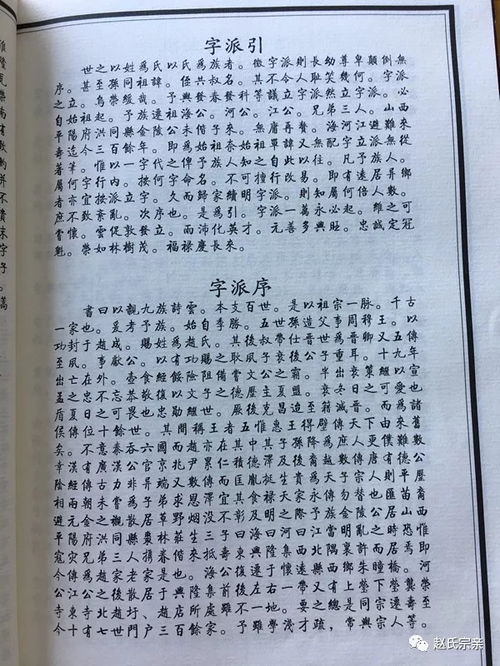 字派引
世之以姓為氏以氏為族者。微字派則長幼尊卑顛倒無
序。甚至孫同祖諱。侄共叔名。其不令人耻笑幾何。字派
之立。烏榮緩哉。予與發春發科等議立字派然立字派。必
自始祖起。予族遷祖海公。河公。江公。兄弟三人。山西
平陽府洪同縣金陵公未偕子來。無庸再贅。海河江避難來
壽迄今三百餘年。即為始祖奈始祖單諱又無配字立派無從
著筆。惟以一字代之俾予族人知之自此以往。凡予族人。
屬何字行內。按何字命名。不可擅行改易。即有遠居异鄉
者亦宜按派立字。久而歸家續明字派。則知屬何倍人數。
庶不數紊亂。次序也。是為引。字派一萬永必起。維之可
嘗懷。雲促敦發立。雨沛化英才。元善多興旺。忠誠定冠
魁。崇如林樹茂。福禄慶長來。
字派序
書曰以親九族詩雲。本文百世。是以祖宗一脉。千古
一家也。爰考予族。始自季勝。五世孫造父事周穆王。以
功封于趙成。賜姓為趙氏。其後叔带仕晋世為晋卿又五傳
至夙。事獻公。以有功賜之耿夙子衰後公子重耳。十九年
出亡在外。壺食經餒險阻備嘗文公之霸。半出衰策經以宣
孟之忠不忘恭敬復以文子之德歷主夏盟。衰冬日之可愛也
盾夏日之可畏也忠勛經世。厥後克昌造至蓊滅晋。而為諸
侯傳位十餘世。其間稱王者五惟惠王得璧傳天下由來舊
矣。不意秦吞六國而趙亦在其中其子孫降為庶人更僕難數
幸漢有廣漢公官京兆尹累仁積德澤及後裔越數傳唐有德公
陰經傳古力非异端又數傳而匡胤挺生貴為天子宋享人則平歷
相兩朝未嘗為子弟求恩澤宜其食禄天家永傳勿替也匪苗裔
避元金之觀散居草野烟没不彰及明之際予族金陵公居山西
平陽府洪同縣棗林莊生三子曰海曰河曰江當明亂之時恐惟
寇灾兄弟三人携眷偕來抵壽東興隆集西北隅裏許而居焉即
今傳為趙家老家是也。海公復遷于懷遠縣西鄉朱疃橋。河
公江公之後散居于興隆集前後左右一帶又有上瑩下瑩龔榮
寺東寺北趙圩、趙店所處雖不一地。要之總是同宗遷壽至
今十有七世門户三百餘家。予雖學淺才疏，常與宗人等。
赵氏宗亲